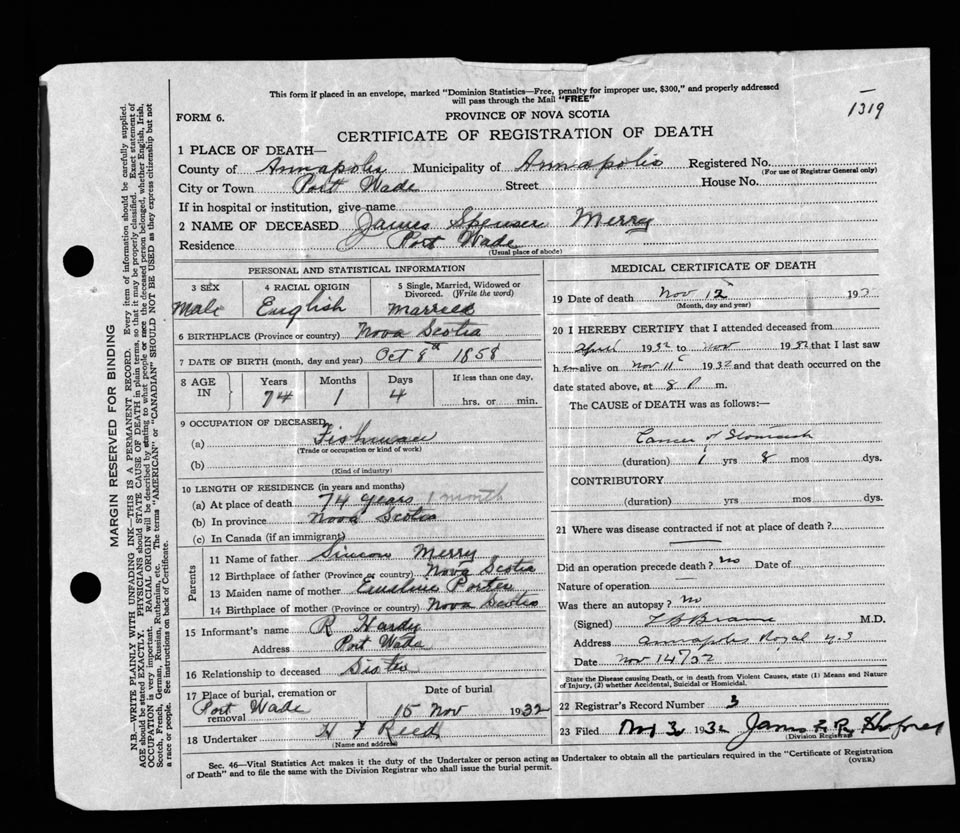 This form if placed in an envelope, marked "Dominion Statistics—Free, penalty for improper use, $300," and properly addressed
will pass through the Mail "FREE"
1319
FORM 6.
PROVINCE OF NOVA SCOTIA
CERTIFICATE OF REGISTRATION OF DEATH
1 PLACE OF DEATH—
County of Annapolis Municipality of Annapolis Registered No.
(For use of Registrar General only)
City or Town Port Wade Street House No.
If in hospital or institution, give name
2 NAME OF DECEASED James Spenser Merry
Residence Port Wade
(Usual place of abode)
PERSONAL AND STATISTICAL INFORMATION
3 SEX 4 RACIAL ORIGIN 5 Single, Married, Widowed or
Divorced. (Write the word)
Male English Married
6 BIRTHPLACE (Province or country) Nova Scotia
7 DATE OF BIRTH (month, day and year) Oct 8th 1858
8 AGE IN Years Months Days If less than one day,
74 1 4 hrs. or min.
9 OCCUPATION OF DECEASED
(a) Fishman
(Trade or occupation or kind of work)
(b)
(Kind of industry)
10 LENGTH OF RESIDENCE (in years and months)
(a) At place of death 74 years 1 month
(b) In province Nova Scotia
(c) In Canada (if an immigrant)
Parents
11 Name of father Simeon Merry
12 Birthplace of father (Province or country) Nova Scotia
13 Maiden name of mother Emeline Porter
14 Birthplace of mother (Province or country) Nova Scotia
15 Informant's name R Hardy
Address Port Wade
16 Relationship to deceased Sister
17 Place of burial, cremation or removal Date of burial
Port Wade 15 Nov 1932
18 Undertaker H F Reed
(Name and address)
MEDICAL CERTIFICATE OF DEATH
19 Date of death Nov 12 193
(Month, day and year)
20 I HEREBY CERTIFY that I attended deceased from
April 1932 to Nov 1932 that I last saw
him alive on Nov 11 1932 and that death occurred on the
date stated above, at 8 P m.
The CAUSE of DEATH was as follows:—
Cancer of Stomach
(duration) 1 yrs 8 mos dys.
CONTRIBUTORY
(duration) yrs mos dys.
21 Where was disease contracted if not at place of death?
Did an operation precede death? no Date of
Nature of operation
Was there an autopsy? No
(Signed) M.D.
Address Annapolis Royal N.S
Date Nov 14/32
State the Disease causing Death, or in death from Violent Causes, state (1) Means and Nature
of Injury, (2) whether Accidental, Suicidal or Homicidal.
22 Registrar's Record Number 3
23 Filed 1932 James
(Division Registrar)
Sec. 46—Vital Statistics Act makes it the duty of the Undertaker or person acting as Undertaker to obtain all the particulars required in the "Certificate of Registration
of Death" and to file the same with the Division Registrar who shall issue the burial permit.
(OVER)
MARGIN RESERVED FOR BINDING
N.B.—WRITE PLAINLY WITH UNFADING INK—THIS IS A PERMANENT RECORD. Every item of information should be carefully supplied.
AGE should be stated EXACTLY. PHYSICIANS should STATE CAUSE OF DEATH in plain terms, so that it may be properly classified. Exact statement of
OCCUPATION is very important. RACIAL ORIGIN will be described by stating to what people or race the deceased person belonged, whether English, Irish,
Scotch, French, German, Russian, Ruthenian, etc. The terms "AMERICAN" or "CANADIAN" SHOULD NOT BE USED as they express citizenship but not
a race or people. See instructions on back of Certificate.